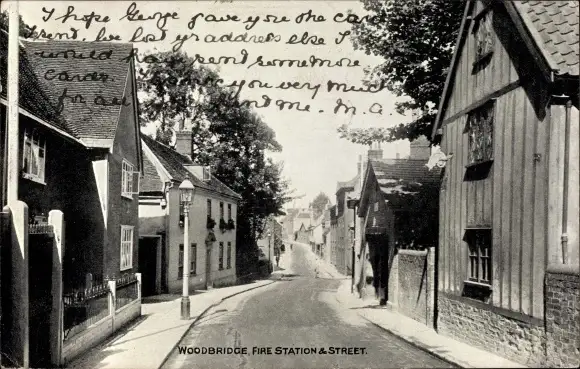 I hope George gave you the card
I sent, he lost yr address else I
would have sent some more
cards you very much
for all sent me. M.A.
WOODBRIDGE, FIRE STATION & STREET.